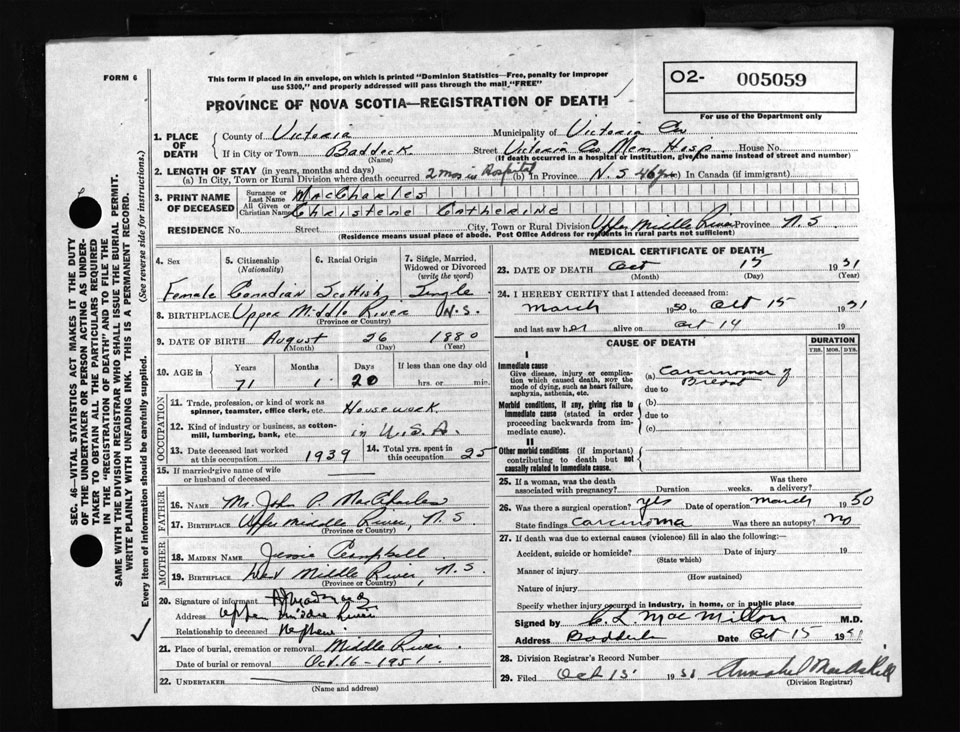 FORM 6
This form if placed in an envelope, on which is printed "Dominion Statistics—Free, penalty for improper
use $300," and properly addressed will pass through the mail "FREE"
PROVINCE OF NOVA SCOTIA—REGISTRATION OF DEATH
O2- 005059
For use of the Department only
1. PLACE OF DEATH
County of Victoria Municipality of Victoria Co
If in City or Town Baddeck Street Victoria Co Mem. Hosp. House No.
(Name) (If death occurred in a hospital or institution, give the name instead of street and number)
2. LENGTH OF STAY (in years, months and days)
(a) In City, Town or Rural Division where death occurred 2 mos in Hospital (b) In Province N.S 46 yrs (c) In Canada (if immigrant)
3. PRINT NAME OF DECEASED
Surname or Last Name MacCharles
All Given or Christian Names Christene Catherine
RESIDENCE No. Street City, Town or Rural Division Upper Middle River Province N.S
(Residence means usual place of abode. Post Office Address for residents in rural parts not sufficient)
4. Sex 5. Citizenship (Nationality) 6. Racial Origin 7. Single, Married, Widowed or Divorced (write the word)
Female Canadian Scottish Single
8. BIRTHPLACE Upper Middle River N.S.
(Province or Country)
9. DATE OF BIRTH August 26 1880
(Month) (Day) (Year)
10. AGE in Years Months Days If less than one day old
71 1 20 hrs. or min.
OCCUPATION
11. Trade, profession, or kind of work as spinner, teamster, office clerk, etc. Housework
12. Kind of industry or business, as cotton-mill, lumbering, bank, etc. in U.S.A.
13. Date deceased last worked at this occupation 1939 14. Total yrs. spent in this occupation 25
15. If married give name of wife or husband of deceased
FATHER
16. NAME Mr. John P. MacCharles
17. BIRTHPLACE Upper Middle River, N.S
(Province or Country)
MOTHER
18. MAIDEN NAME Jessie Campbell
19. BIRTHPLACE West Middle River, N.S.
(Province or Country)
20. Signature of informant
Address Upper Middle River
Relationship to deceased Nephew
21. Place of burial, cremation or removal Middle River
Date of burial or removal Oct. 16 - 1951
22. UNDERTAKER
(Name and address)
MEDICAL CERTIFICATE OF DEATH
23. DATE OF DEATH Oct 15 1951
(Month) (Day) (Year)
24. I HEREBY CERTIFY that I attended deceased from:
March 1950 to Oct 15 1951
and last saw her alive on Oct 14 19
CAUSE OF DEATH
DURATION
YRS. MOS. DYS.
I
Immediate cause
Give disease, injury or complication which caused death, NOT the mode of dying, such as heart failure, asphyxia, asthenia, etc.
(a) Carcinoma of Breast
due to
Morbid conditions, if any, giving rise to immediate cause (stated in order proceeding backwards from immediate cause).
(b)
due to
(c)
II
Other morbid conditions (if important) contributing to death but not causally related to immediate cause.
25. If a woman, was the death associated with pregnancy? Duration weeks. Was there a delivery?
26. Was there a surgical operation? yes Date of operation March 1950
State findings Carcinoma Was there an autopsy? No
27. If death was due to external causes (violence) fill in also the following:—
Accident, suicide or homicide? Date of injury 19
(State which)
Manner of injury
(How sustained)
Nature of injury
Specify whether injury occurred in industry, in home, or in public place
Signed by C. L. MacMillan M.D.
Address Baddeck Date Oct 15 1951
28. Division Registrar's Record Number
29. Filed Oct 15 1951 Annabel MacAskill
(Division Registrar)
SEC. 46—VITAL STATISTICS ACT MAKES IT THE DUTY
OF THE UNDERTAKER OR PERSON ACTING AS UNDER-
TAKER TO OBTAIN ALL THE PARTICULARS REQUIRED
IN THE "REGISTRATION OF DEATH" AND TO FILE THE
SAME WITH THE DIVISION REGISTRAR WHO SHALL ISSUE THE BURIAL PERMIT.
WRITE PLAINLY WITH UNFADING INK. THIS IS A PERMANENT RECORD.
Every item of information should be carefully supplied. (See reverse side for instructions.)